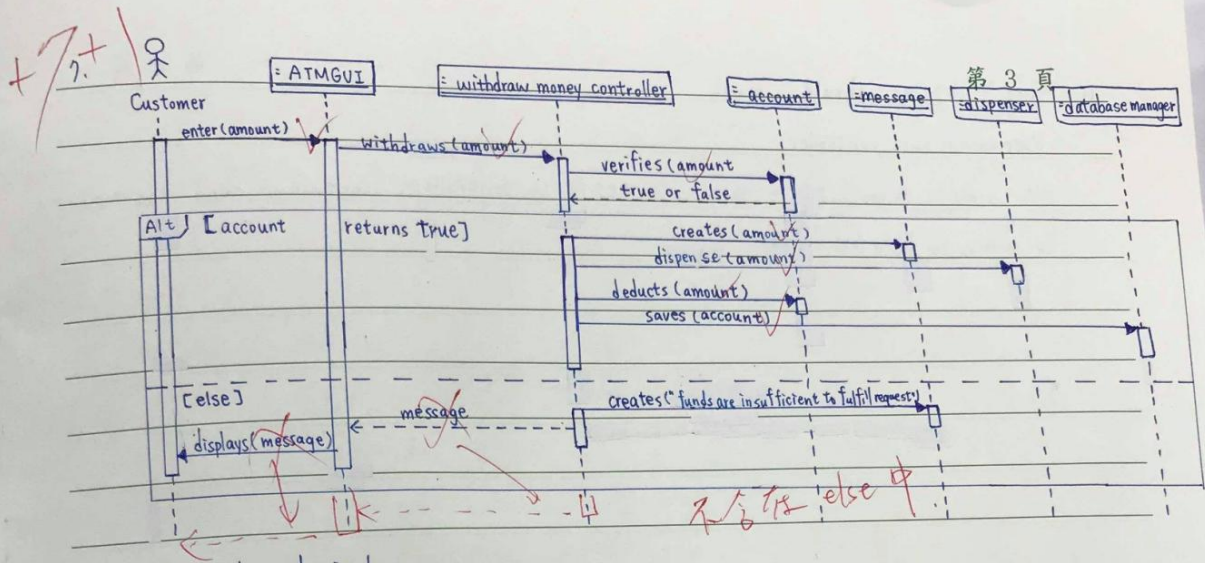 +7
7.+1
第 3 頁
Customer
: ATMGUI
: withdraw money controller
: account
:message
:dispenser
:database manager
enter(amount)
withdraws(amount)
verifies(amount
true or false
Alt
[account returns true]
creates(amount)
dispense(amount)
deducts(amount)
saves(account)
[else]
creates("funds are insufficient to fulfill request")
message
displays(message)
else 中